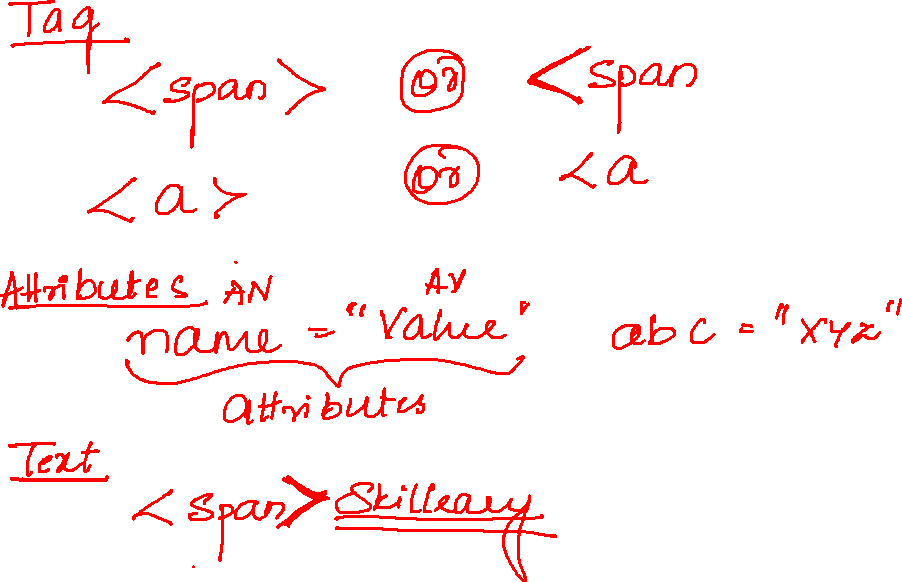 Tag
<span> or <span
<a> or <a
Attributes AN AV
name = "Value" abc = "XYZ"
attributes
Text
<span> Skilleary